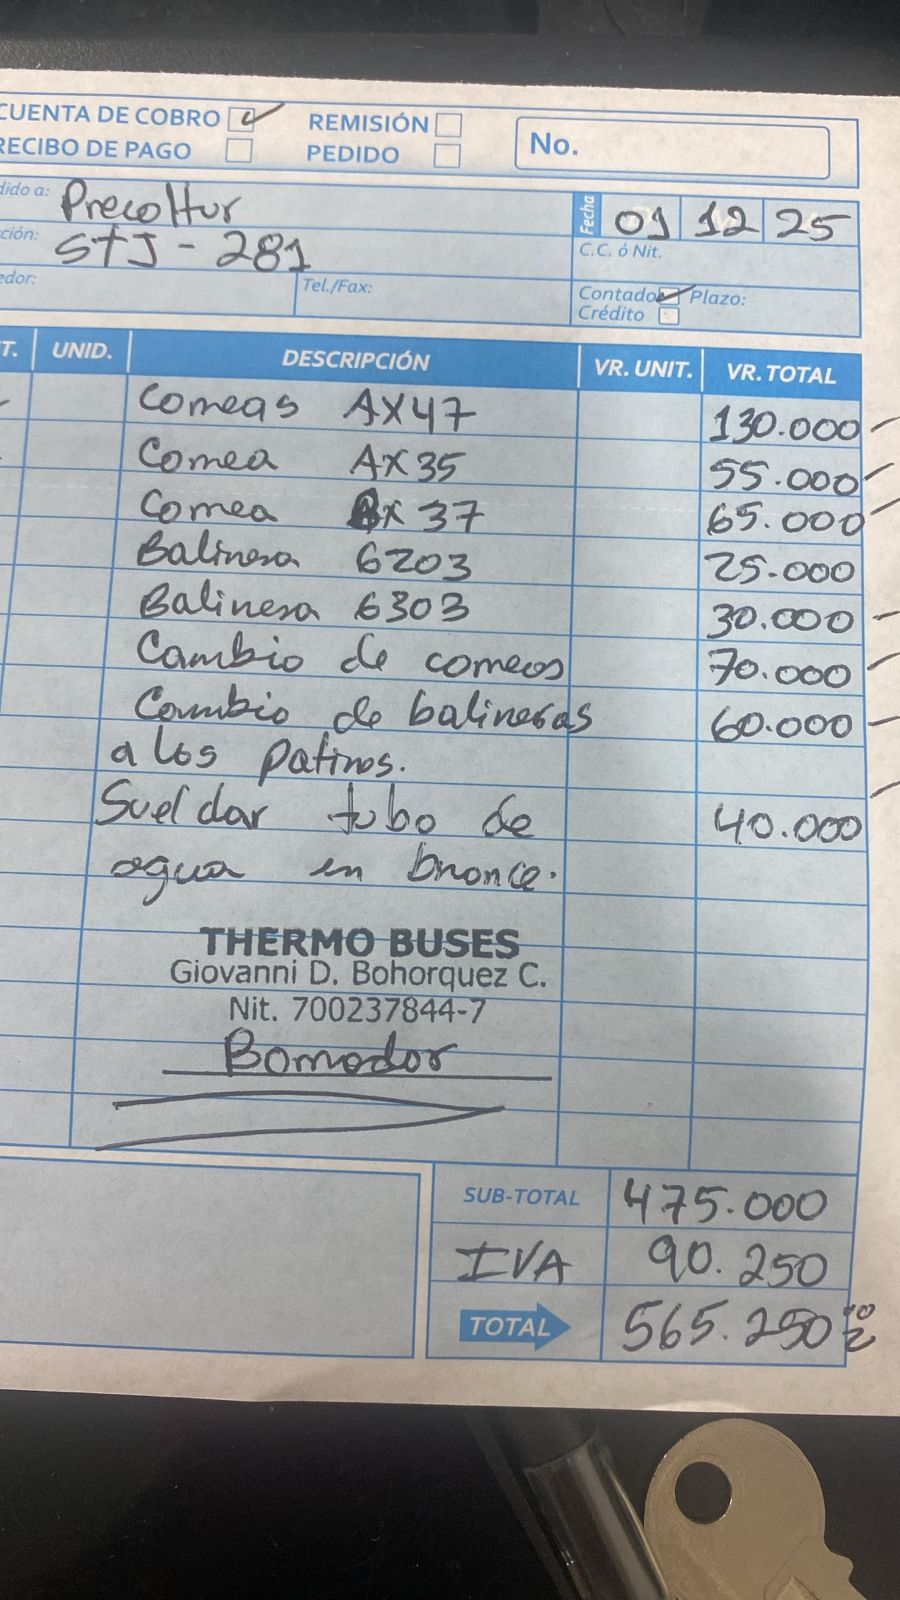 CUENTA DE COBRO REMISIÓN No.
RECIBO DE PAGO PEDIDO
dido a: Precoltur Fecha 01 12 25
ción: STJ - 281 C.C. ó Nit.
edor: Tel./Fax: Contado Plazo:
Crédito
T. UNID. DESCRIPCIÓN VR. UNIT. VR. TOTAL
Correas AX47 130.000
Correa AX35 55.000
Correa AX 37 65.000
Balinera 6203 25.000
Balinera 6303 30.000
Cambio de correas 70.000
Cambio de balineras 60.000
a los patines.
Sueldar tubo de 40.000
agua en bronce.
THERMO BUSES
Giovanni D. Bohorquez C.
Nit. 700237844-7
SUB-TOTAL 475.000
IVA 90.250
TOTAL 565.250